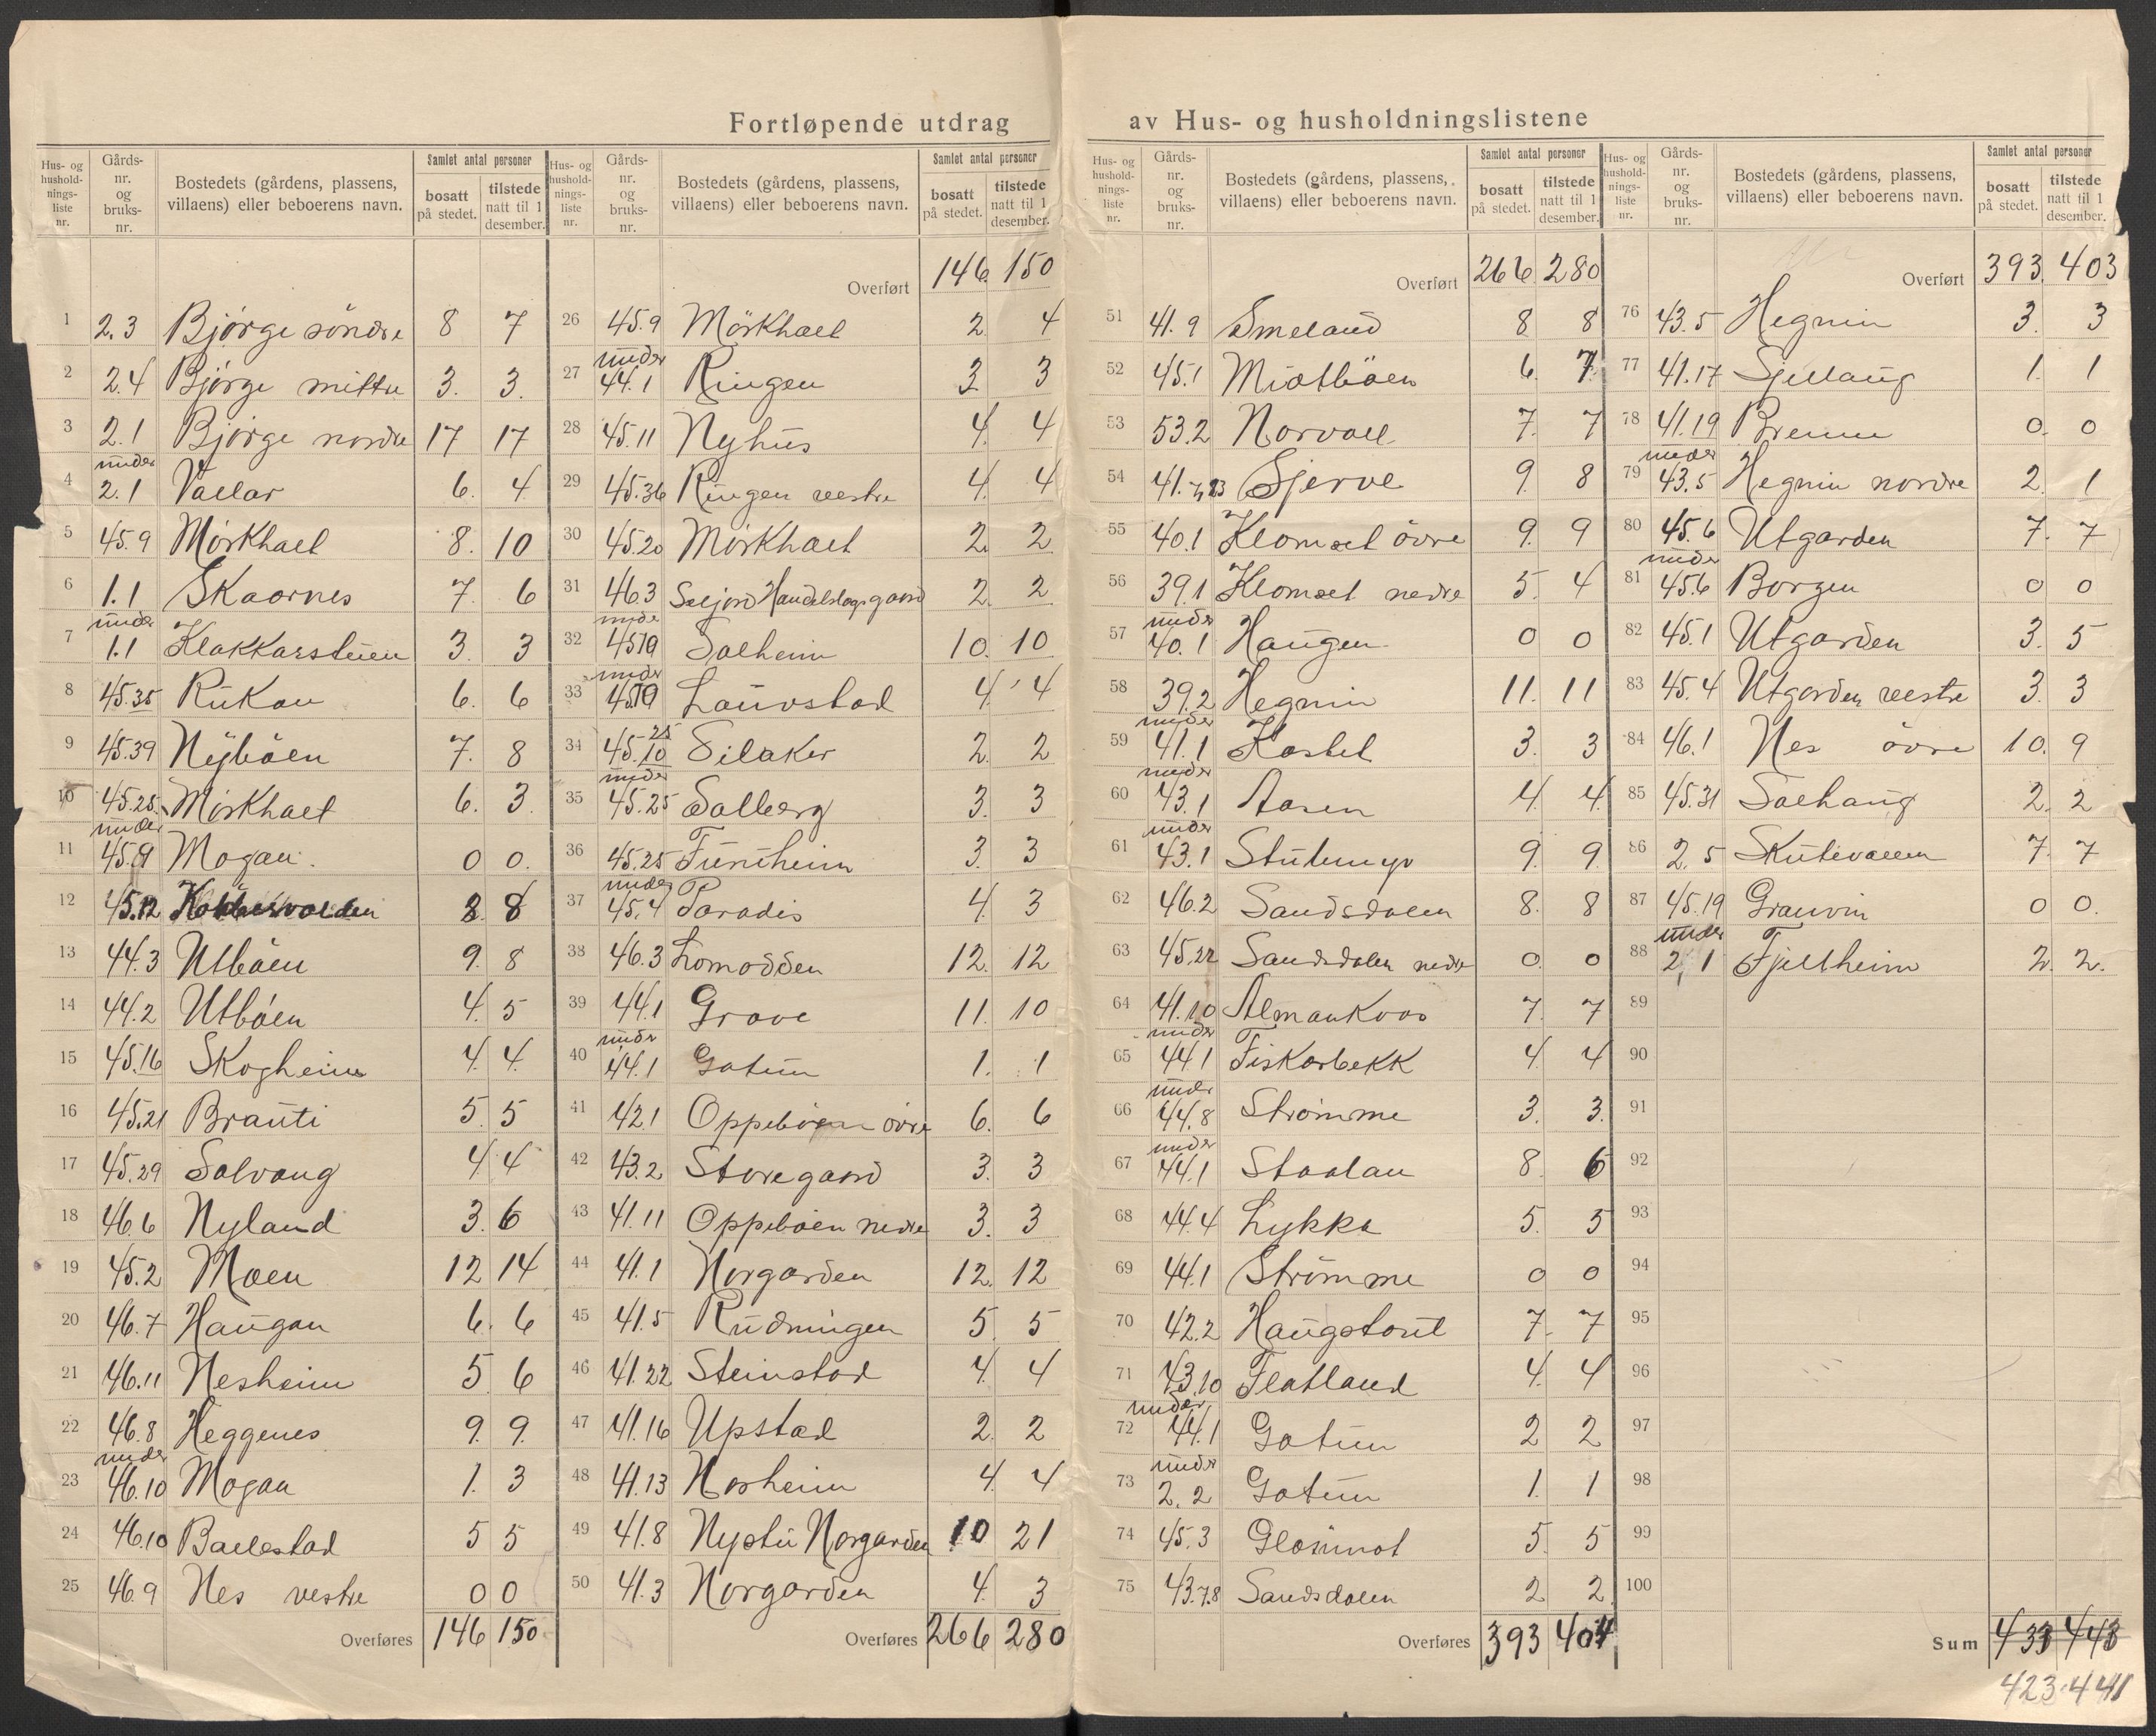 Fortløpende utdrag av Hus- og husholdningslistene
Hus- og hushold-nings-liste nr. Gårds-nr. og bruks-nr. Bostedets (gårdens, plassens, villaens) eller beboerens navn. Samlet antal personer bosatt på stedet. tilstede natt til 1 desember.
1 2.3 Bjørge søndre 8 7
2 2.4 Bjørge mittre 3. 3.
3 2.1 Bjørge nordre 17 17
4 under 2.1 Vallar 6. 4
5 45.9 Mørkhael 8. 10
6 1.1 Skaarnes 7. 6
7 under 1.1 Klakkarstuen 3. 3
8 45.35 Rukan 6. 6
9 45.39 Nybøen 7. 8
10 45.25 Mørkhaet 6. 3.
11 under 45.9 Mogan. 0 0.
12 45.12 8
13 44.3 Utbøen 9. 8
14 44.2 Utbøen 4. 5
15 45.16 Skogheim 4. 4.
16 45.21 Brauti 5. 5
17 45.29 Solvang 4. 4
18 46.6 Nyland 3. 6
19 45.2 Moen 12 14
20 46.7 Haugan 6. 6
21 46.11 Nesheim 5 6
22 46.8 Heggenes 9. 9.
23 under 46.10 Mogan 1. 3
24 46.10 Ballestad 5 5
25 46.9 Nes vestre 0 0
Overføres 146 150
Hus- og hushold-nings-liste nr. Gårds-nr. og bruks-nr. Bostedets (gårdens, plassens, villaens) eller beboerens navn. Samlet antal personer bosatt på stedet. tilstede natt til 1 desember.
Overført 146. 150
26 45.9 Mörkhael 2. 4
27 under 44.1 Ringen 3 3
28 45.11 Nyhus 4. 4
29 45.36 Ringen vestre 4. 4
30 45.20 Mørkhaet 2. 2
31 46.3 Seljord Handelslagsgaard 2. 2
32 under 45.19 Solheim 10. 10
33 under 45.19 Lauvstad 4. 4
34 45.10 25 Silaker 2. 2
35 under 45.25 Solberg 3. 3
36 45.25 Furuheim 3. 3
37 under 45.4 Paradis 4. 3
38 46.3 Lomodden 12. 12
39 44.1 Grave 11. 10
40 under 44.1 Gatun 1. 1
41 42.1 Oppebøen øvre 6. 6
42 43.2 Storegaard 3. 3
43 41.11 Oppebøen nedre 3. 3
44 41.1 Norgarden 12. 12
45 41.5 Rudningen 5. 5
46 41.22 Steinstad 4. 4
47 41.16 Upstad 2. 2
48 41.13 Norheim 4. 4
49 41.8 Nystu Norgarden 10 21
50 41.3 Norgarden 4. 3
Overføres 266 280
Hus- og hushold-nings-liste nr. Gårds-nr. og bruks-nr. Bostedets (gårdens, plassens, villaens) eller beboerens navn. Samlet antal personer bosatt på stedet. tilstede natt til 1 desember.
Overført 266 280
51 41.9 Smeland 8 8
52 45.1 Midtbøen 6. 7
53 53.2 Norvall 7. 7
54 41.7,23 Gjerve 9. 8
55 40.1 Klomset øvre 9. 9
56 39.1 Klomset nedre 5. 4
57 under 40.1 Haugen 0 0
58 39.2 Hegnin 11. 11
59 under 41.1 Kastel 3. 3
60 under 43.1 Aasen 4. 4.
61 under 43.1 Stulemyr 9. 9.
62 46.2 Sandsdalen 8. 8
63 45.22 Sandsdalen nedre 0. 0
64 41.10 Almankvos 7. 7
65 under 44.1 Fiskarbekk 4. 4
66 under 44.8 Strømme 3. 3.
67 under 44.1 Staalan 8. 6
68 44.4 Lykka 5. 5
69 44.1 Strømme 0 0
70 42.2 Haugstout 7. 7
71 43.10 Flatland 4. 4
72 under 44.1 Gatun 2 2
73 under 2.2 Gatun 1. 1
74 45.3 Gløimnot 5. 5
75 43.7.8 Sandsdalen 2 2
Overføres 393 404
Hus- og hushold-nings-liste nr. Gårds-nr. og bruks-nr. Bostedets (gårdens, plassens, villaens) eller beboerens navn. Samlet antal personer bosatt på stedet. tilstede natt til 1 desember.
Overført 393. 403
76 43.5 Hegnin 3. 3
77 41.17 Sjellaug 1. 1
78 41.19 Brenne 0. 0
79 under 43.5 Hegnin nordre 2. 1
80 45.6 Utgarden 7. 7
81 under 45.6 Borgen 0 0
82 45.1 Utgarden 3. 5
83 45.4 Utgarden vestre 3. 3
84 46.1 Nes øvre 10. 9
85 45.31 Solhaug 2. 2
86 2.5 Skutevallen 7. 7
87 45.19 Granvin 0 0.
88 under 2,1 Fjellheim 2. 2.
89
90
91
92
93
94
95
96
97
98
99
100
Sum 433 443
423. 441